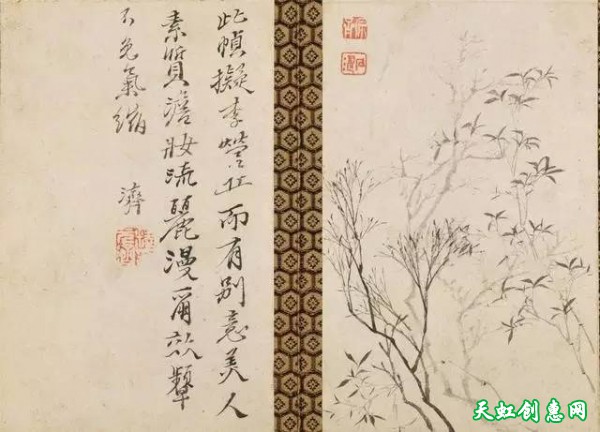 此幀擬李營丘而有別意美人
素質澹妝流麗漫爾效顰
不免氣溯
濟
天虹创惠网